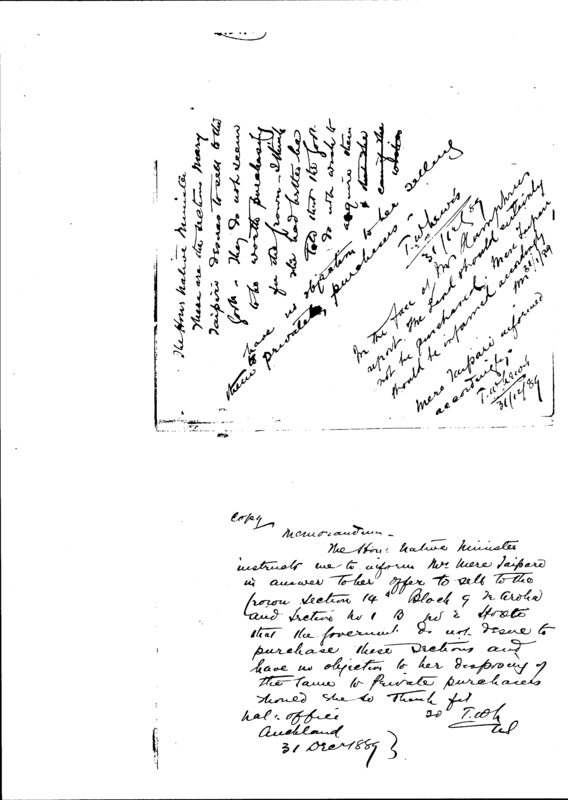 The Hon: Native Minister
These are the sections Mary
Taipari desires to sell to the
Govt - They do not seem
to be worth purchasing
for the Crown - I think
she had better be
Told that the Govt
do not wish to
acquire them
& have no objection to her selling
them to private purchasers -
T.W. Lewis
31/12/89
In the face of Mr Humphries
report the land should certainly
not be purchased. Mere Taipari
should be informed accordingly
31/12/89
Mere Taipari informed
accordingly
T.W. Lewis
31/12/89
Copy
Memorandum -
The Hon: Native Minister
instructs me to inform Mrs Mere Taipari
in answer to her offer to sell to the
Crown Section 14 Block 9 Te Aroha
and Section No 1 B No 2 Hoete
that the Government do not desire to
purchase these Sections and
have no objection to her disposing of
the same to Private purchasers
should she so think fit
Nat: office
Auckland
31 Decr 1889
T.W.L